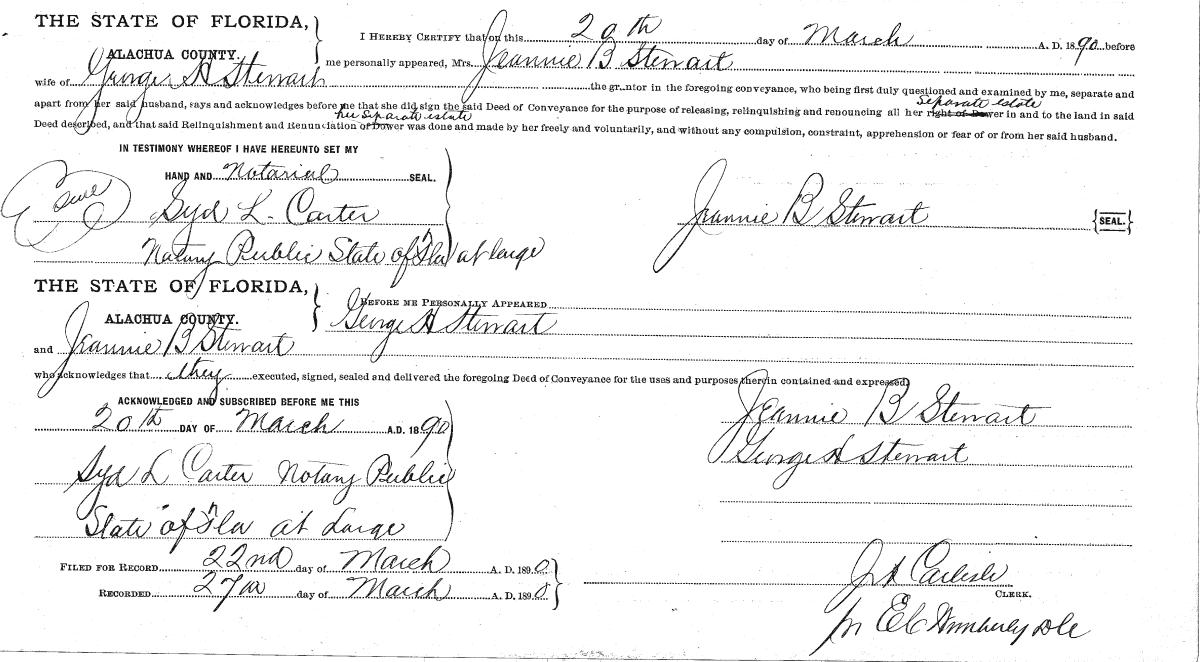 THE STATE OF FLORIDA,
ALACHUA COUNTY.
I HEREBY CERTIFY that on this 20th day of March A. D. 1890 before
me personally appeared, Mrs. Jeannie B Stewart
wife of George H Stewart the gr ntor in the foregoing conveyance, who being first duly questioned and examined by me, separate and
apart from her said husband, says and acknowledges before me that she did sign the said Deed of Conveyance for the purpose of releasing, relinquishing and renouncing all her right of Dower separate estate in and to the land in said
Deed described, and that said Relinquishment and Renunciation or Dower her separate estate was done and made by her freely and voluntarily, and without any compulsion, constraint, apprehension or fear of or from her said husband.
IN TESTIMONY WHEREOF I HAVE HEREUNTO SET MY
HAND AND Notarial SEAL.
Seal
Syd L. Carter
Notary Public State of Fla at large
Jeannie B Stewart {SEAL.}
THE STATE OF FLORIDA,
ALACHUA COUNTY.
BEFORE ME PERSONALLY APPEARED
George H Stewart
and Jeannie B Stewart
who acknowledges that they executed, signed, sealed and delivered the foregoing Deed of Conveyance for the uses and purposes therein contained and expressed.
ACKNOWLEDGED AND SUBSCRIBED BEFORE ME THIS
20th DAY OF March A.D. 1890
Syd L Carter Notary Public
State of Fla at Large
Jeannie B Stewart
George H Stewart
FILED FOR RECORD 22nd day of March A. D. 1890
RECORDED 27th day of March A. D. 1890
J A Carlisle
CLERK.
pr E C Wimberly DC